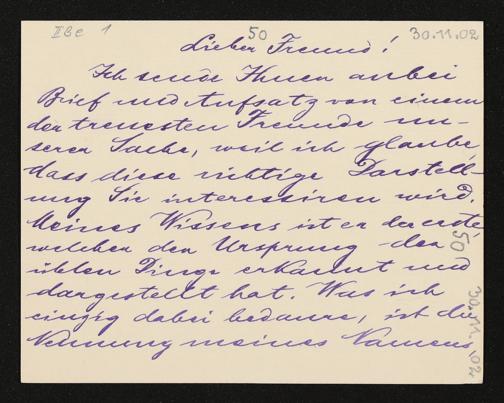 IIBc 1
50
30.11.02
Lieber Freund!
Ich sende Ihnen anbei
Brief und Aufsatz von einem
der treuesten Freunde un-
serer Sache, weil ich glaube,
dass diese richtige Darstell-
ung Sie interessiren wird.
Meines Wissens ist er der erste
welcher den Ursprung der
üblen Dinge erkannt und
dargestellt hat. Was ich
einzig dabei bedaure, ist die
Nennung meines Namens
50
30.11.02